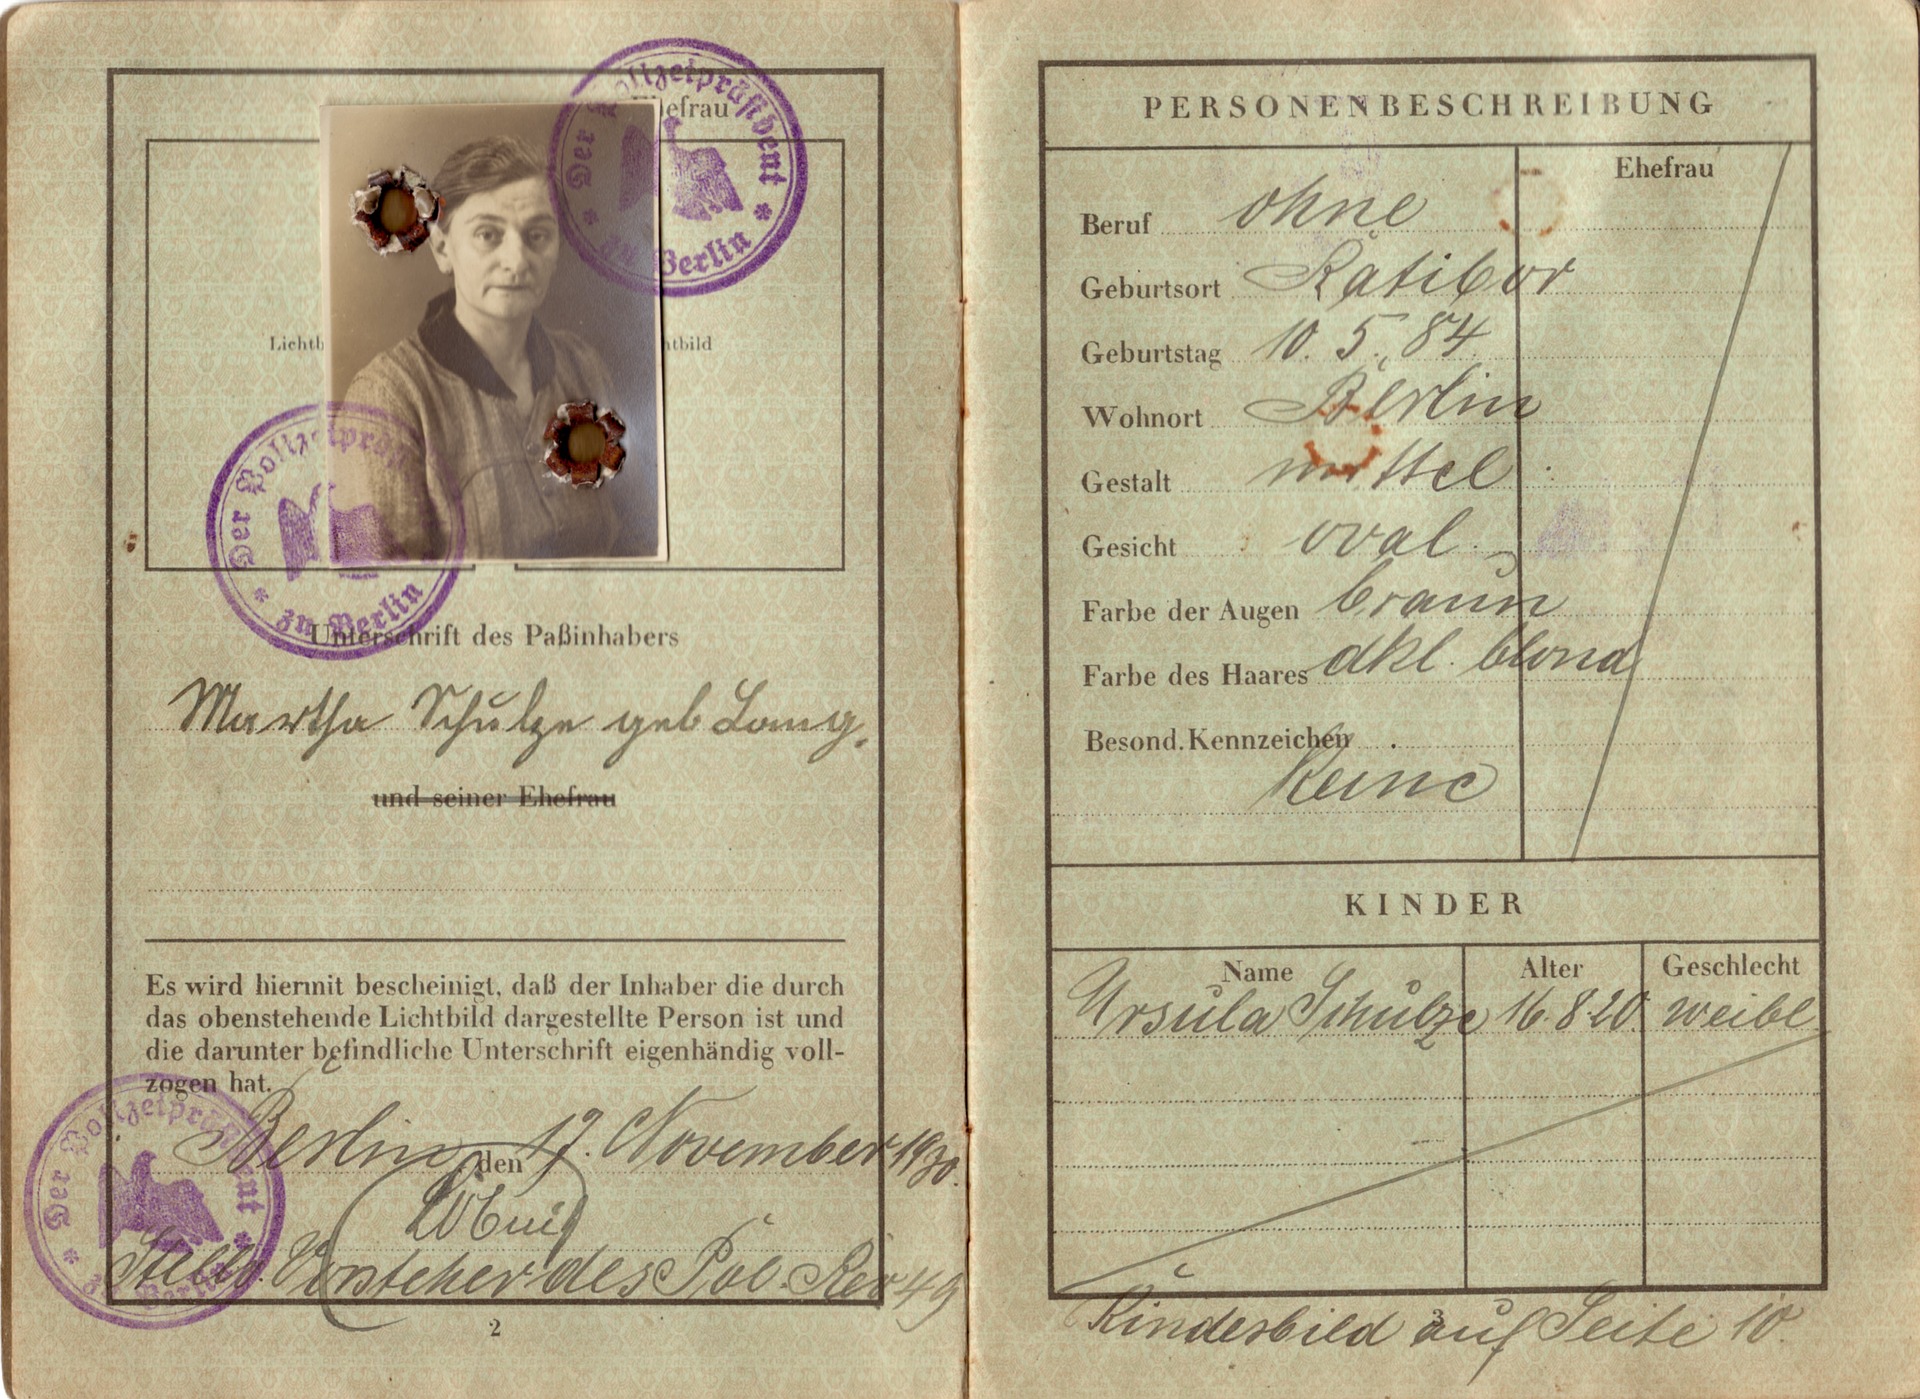 Ehefrau
Der Polizeipräsident
zu Berlin
Lichtb
htbild
Der Polizeipräsident
zu Berlin
Unterschrift des Paßinhabers
Martha Schulze geb Lang.
und seiner Ehefrau
Es wird hiermit bescheinigt, daß der Inhaber die durch
das obenstehende Lichtbild dargestellte Person ist und
die darunter befindliche Unterschrift eigenhändig voll-
zogen hat.
Berlin, den 17. November 1930.
Der Polizeipräsident
zu Berlin
Stellv. Vorsteher des Pol. Rev 49
2
PERSONENBESCHREIBUNG
Ehefrau
Beruf ohne
Geburtsort Ratibor
Geburtstag 10. 5. 84
Wohnort Berlin
Gestalt mittel
Gesicht oval
Farbe der Augen braun
Farbe des Haares dkl. blond
Besond. Kennzeichen
Keine
KINDER
Name Alter Geschlecht
Ursula Schulze 16.8.20 weibl
3
Kindesbild auf Seite 10.